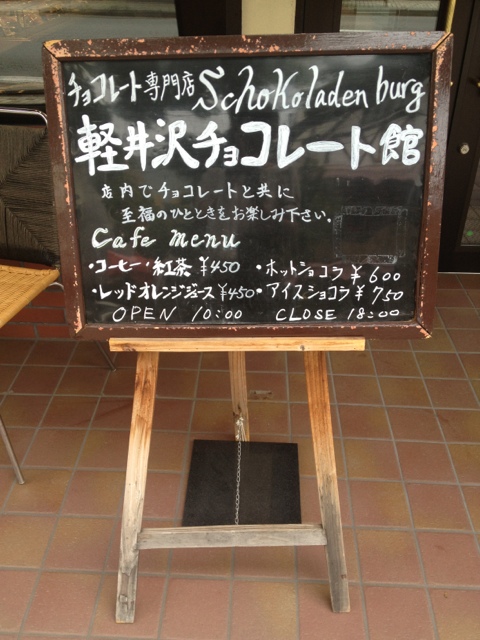 チョコレート専門店 Schokoladen burg
軽井沢チョコレート館
店内でチョコレートと共に
至福のひとときをお楽しみ下さい。
Cafe menu
・コーヒー・紅茶 ¥450 ・ホットショコラ ¥600
・レッドオレンジジュース ¥450 ・アイスショコラ ¥750
OPEN 10:00 CLOSE 18:00